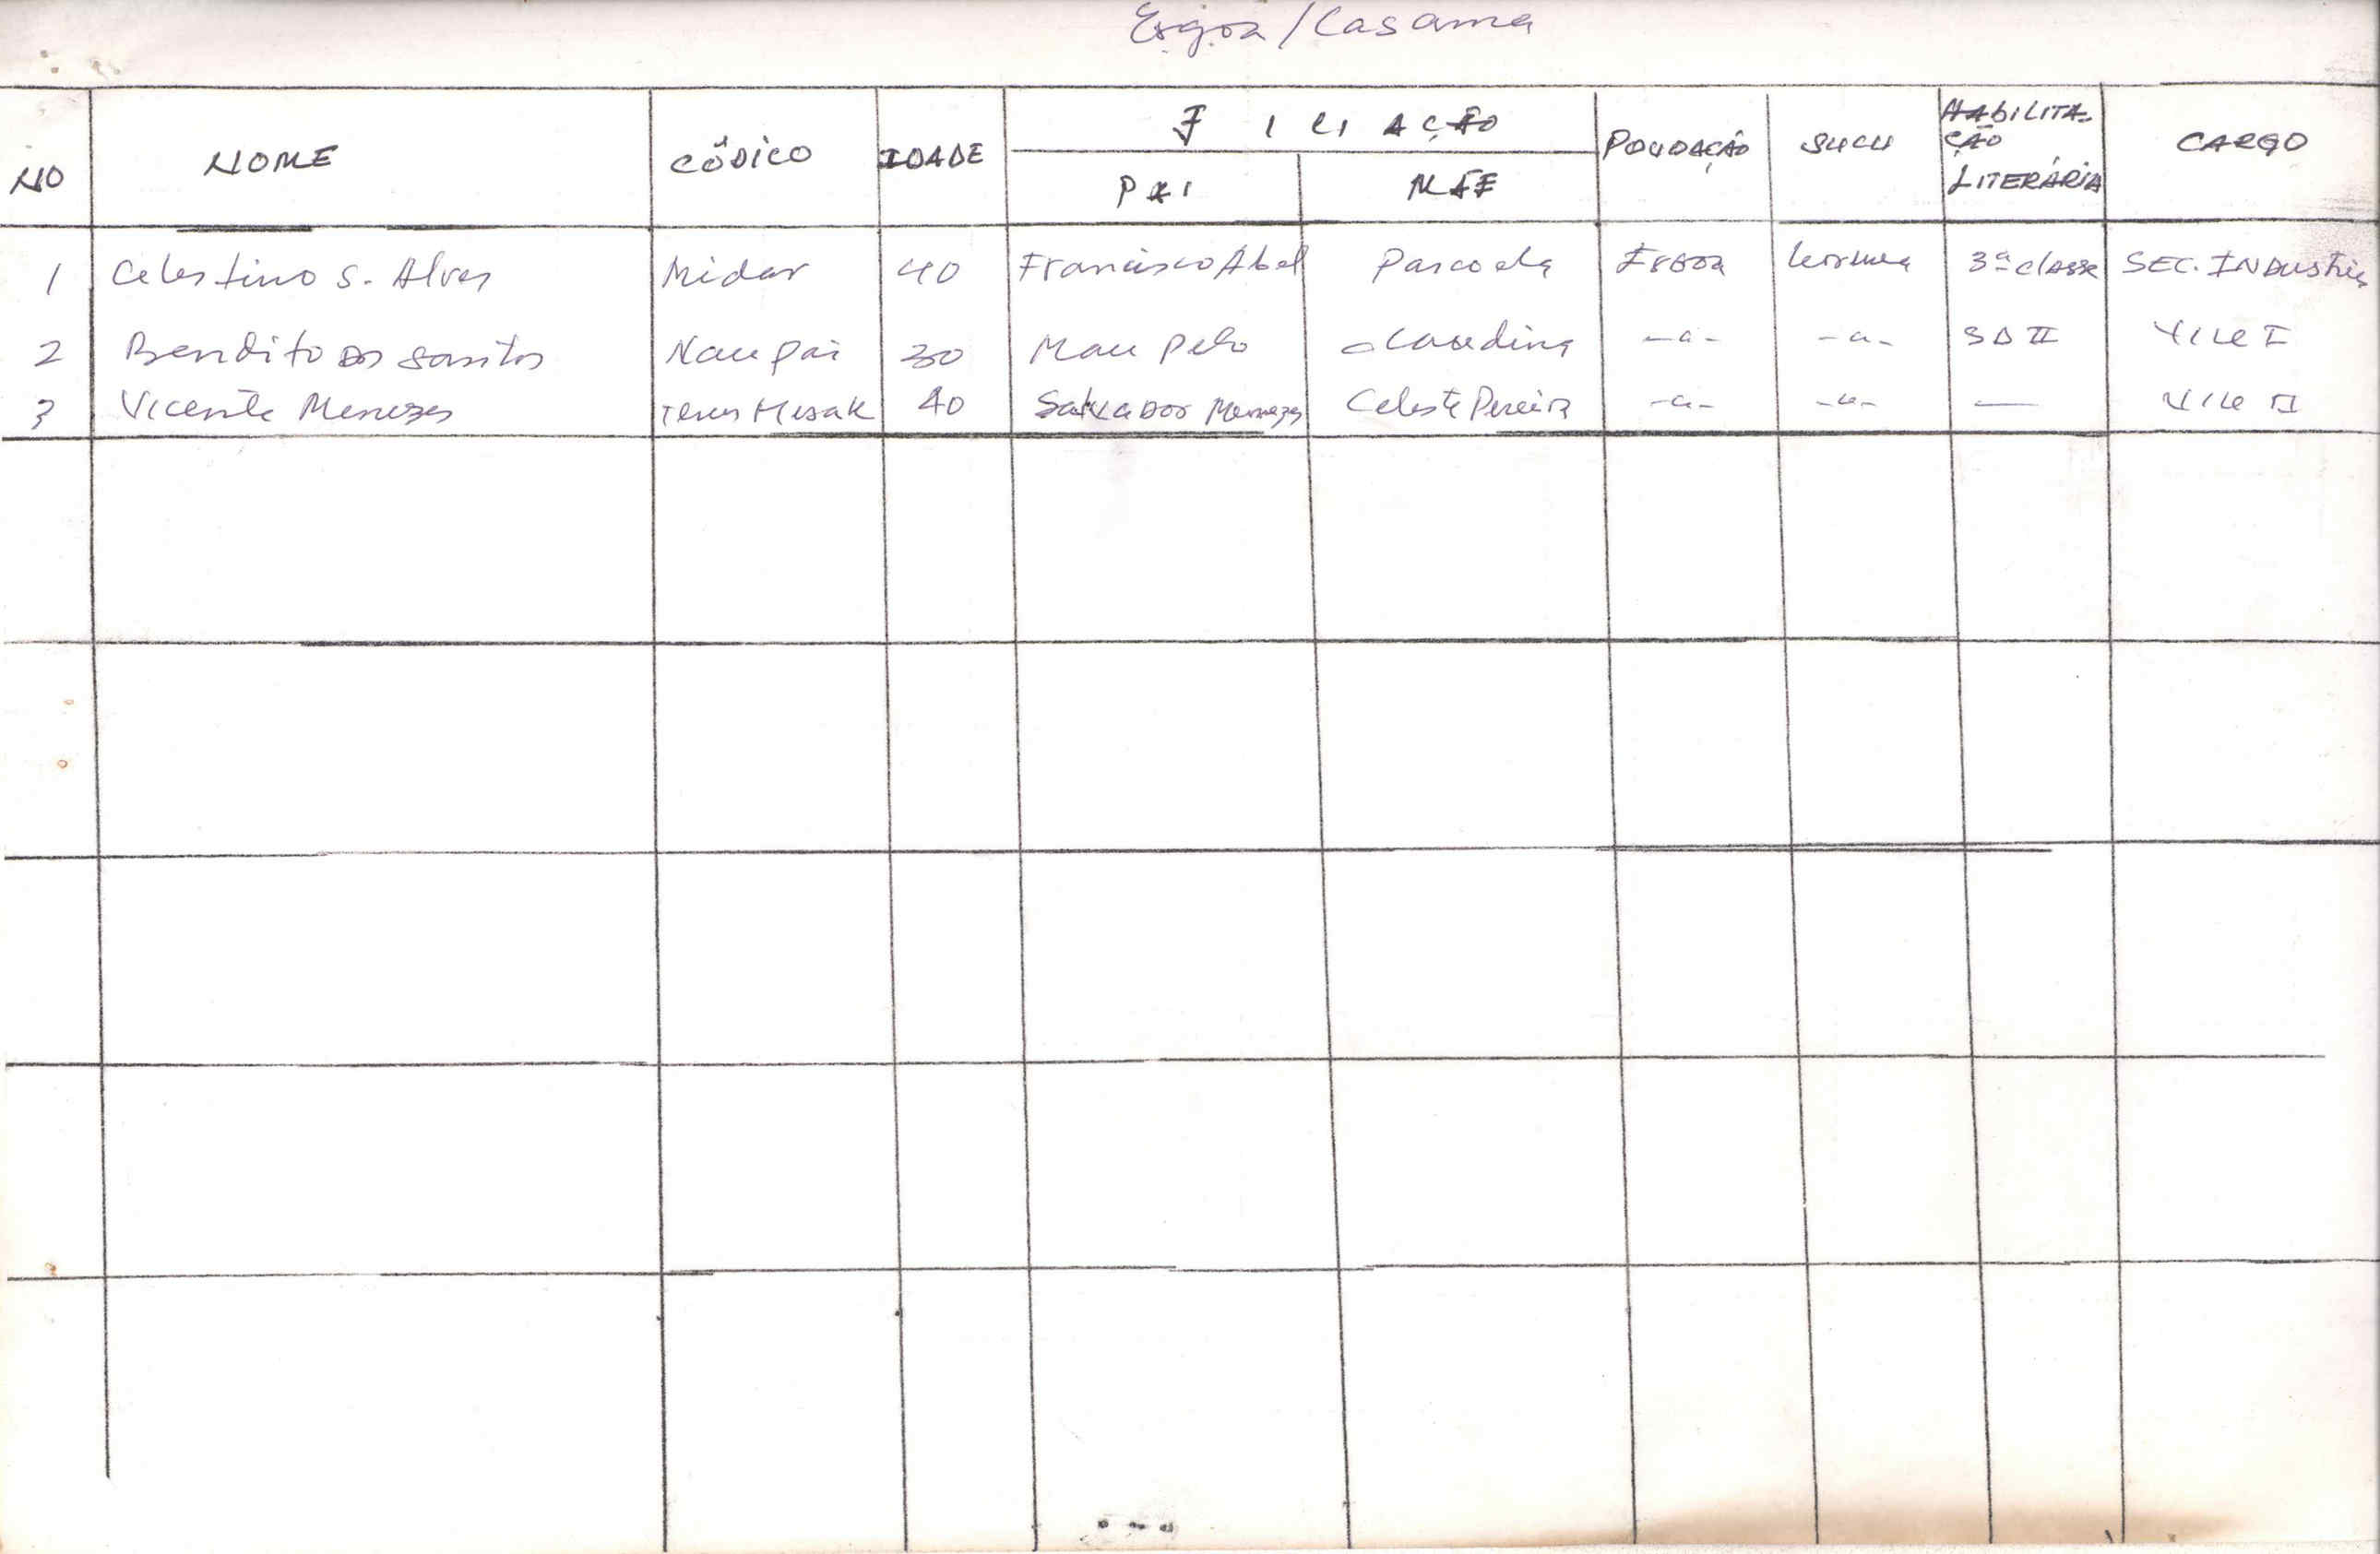 /Casama
NO NOME CÓDICO IDADE FILIAÇÃO POUOAÇÃO SUCU HABILITA-ÇÃO LITERÁRIA CARGO
PAI MÃE
1 Celestino S. Alves Midar 40 Francisco Abel Pascoela 3ª classe SEC. INDustria
2 Bendito Dos santos Naupai 30 Mau pelo claudina -a- -a- SD II VICE I
3 Vicente Menezes Mesak 40 Salvador Menezes Celeste Pereira -a- -a- — VICE II